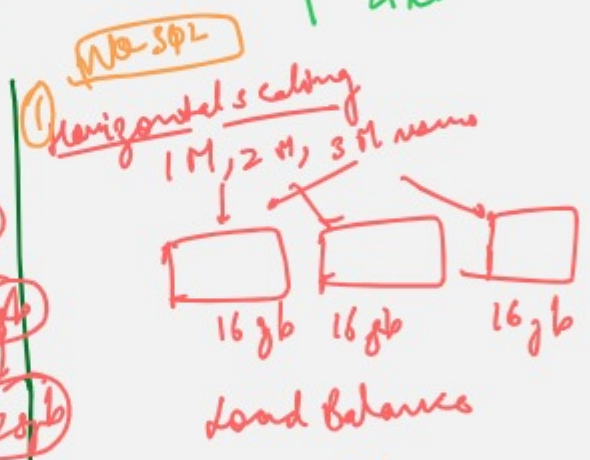 No SQL
① Horizontal scaling
1M, 2M, 3M
16 gb 16 gb 16 gb
Load Balance